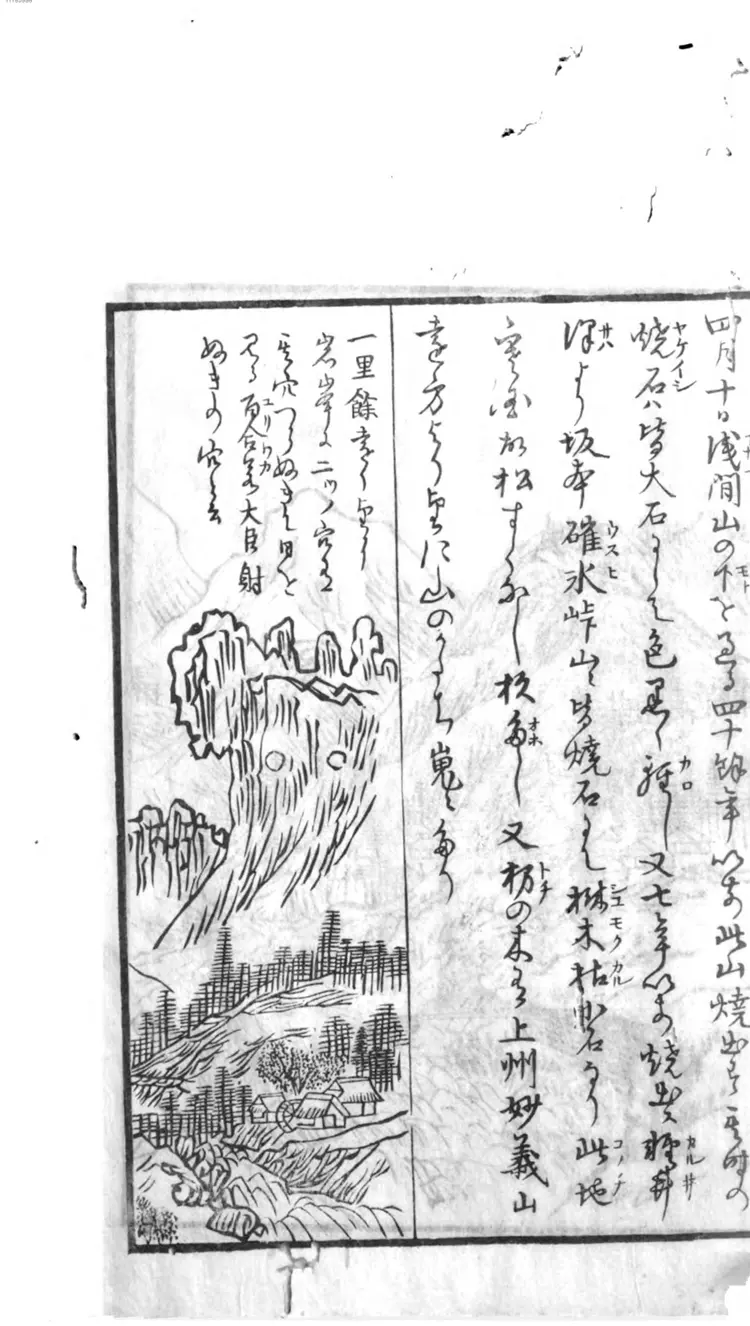 四月十日浅間山の下を過る四十餘年以前此山焼出す其時の
焼石ハ皆大石にして色黒く軽し又七年以前焼出ス軽井
澤より坂本碓氷峠山々皆焼石にて樹木枯小石なり此地
寒强故松すくなし杉多し又栃の木有上州妙義山
遠方より望に山のかたち嵬々たり
一里餘遠く望り
岩山峯に二ツノ穴有
其穴つらぬきて日を
見る百合若大臣射
ぬきの穴と云